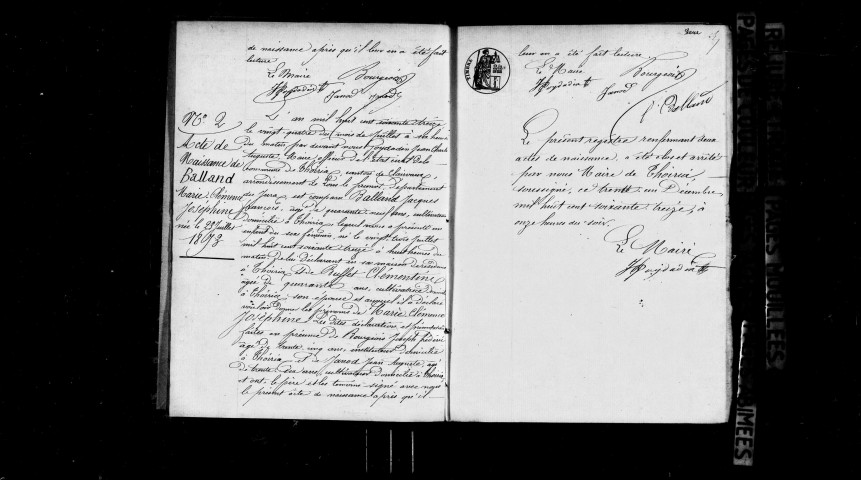 de naissance après qu'il leur en a été fait
lecture
Le Maire Bourgeois
Janod
N° 2
Acte de
Naissance de
Balland
Marie Clémence
Joséphine
née le 23 Juillet
1873
L'an mil huit cent soixante treize
le vingt quatre du mois de juillet à six heures
du matin par devant nous Joydadin Jean Claude
Auguste, Maire officier de l'état civil de la
commune de Thoiria, canton de Clairvaux,
arrondissement de Lons le Saunier, département
du Jura, est comparu Balland Jacques
François, âgé de quarante neuf ans, cultivateur
domicilié à Thoiria, lequel nous a présenté un
enfant du sexe féminin, né le vingt trois juillet
mil huit cent soixante treize à huit heures du
matin de lui déclarant en sa maison
à Thoiria et de Buffet Clémentine
âgée de quarante ans, cultivatrice
à Thoiria, son épouse et auquel il a déclaré
vouloir donner les prénoms de Marie Clémence
Joséphine. Les dites déclaration et présentation
faites en présence de Bourgeois Joseph
âgé de trente cinq ans, instituteur domicilié
à Thoiria, et de Janod Jean Auguste, âgé
de trente six ans, cultivateur domicilié à Thoiria,
et ont, le père et les témoins signé avec nous
le présent acte de naissance après qu'il
Deux
TIMBRE
leur en a été fait lecture.
Le Maire Bourgeois
Janod
J. Balland
Le présent registre renfermant deux
actes de naissance, a été clos et arrêté
par nous Maire de Thoiria
soussigné, ce trente un Décembre
mil huit cent soixante treize, à
onze heures du soir.
Le Maire